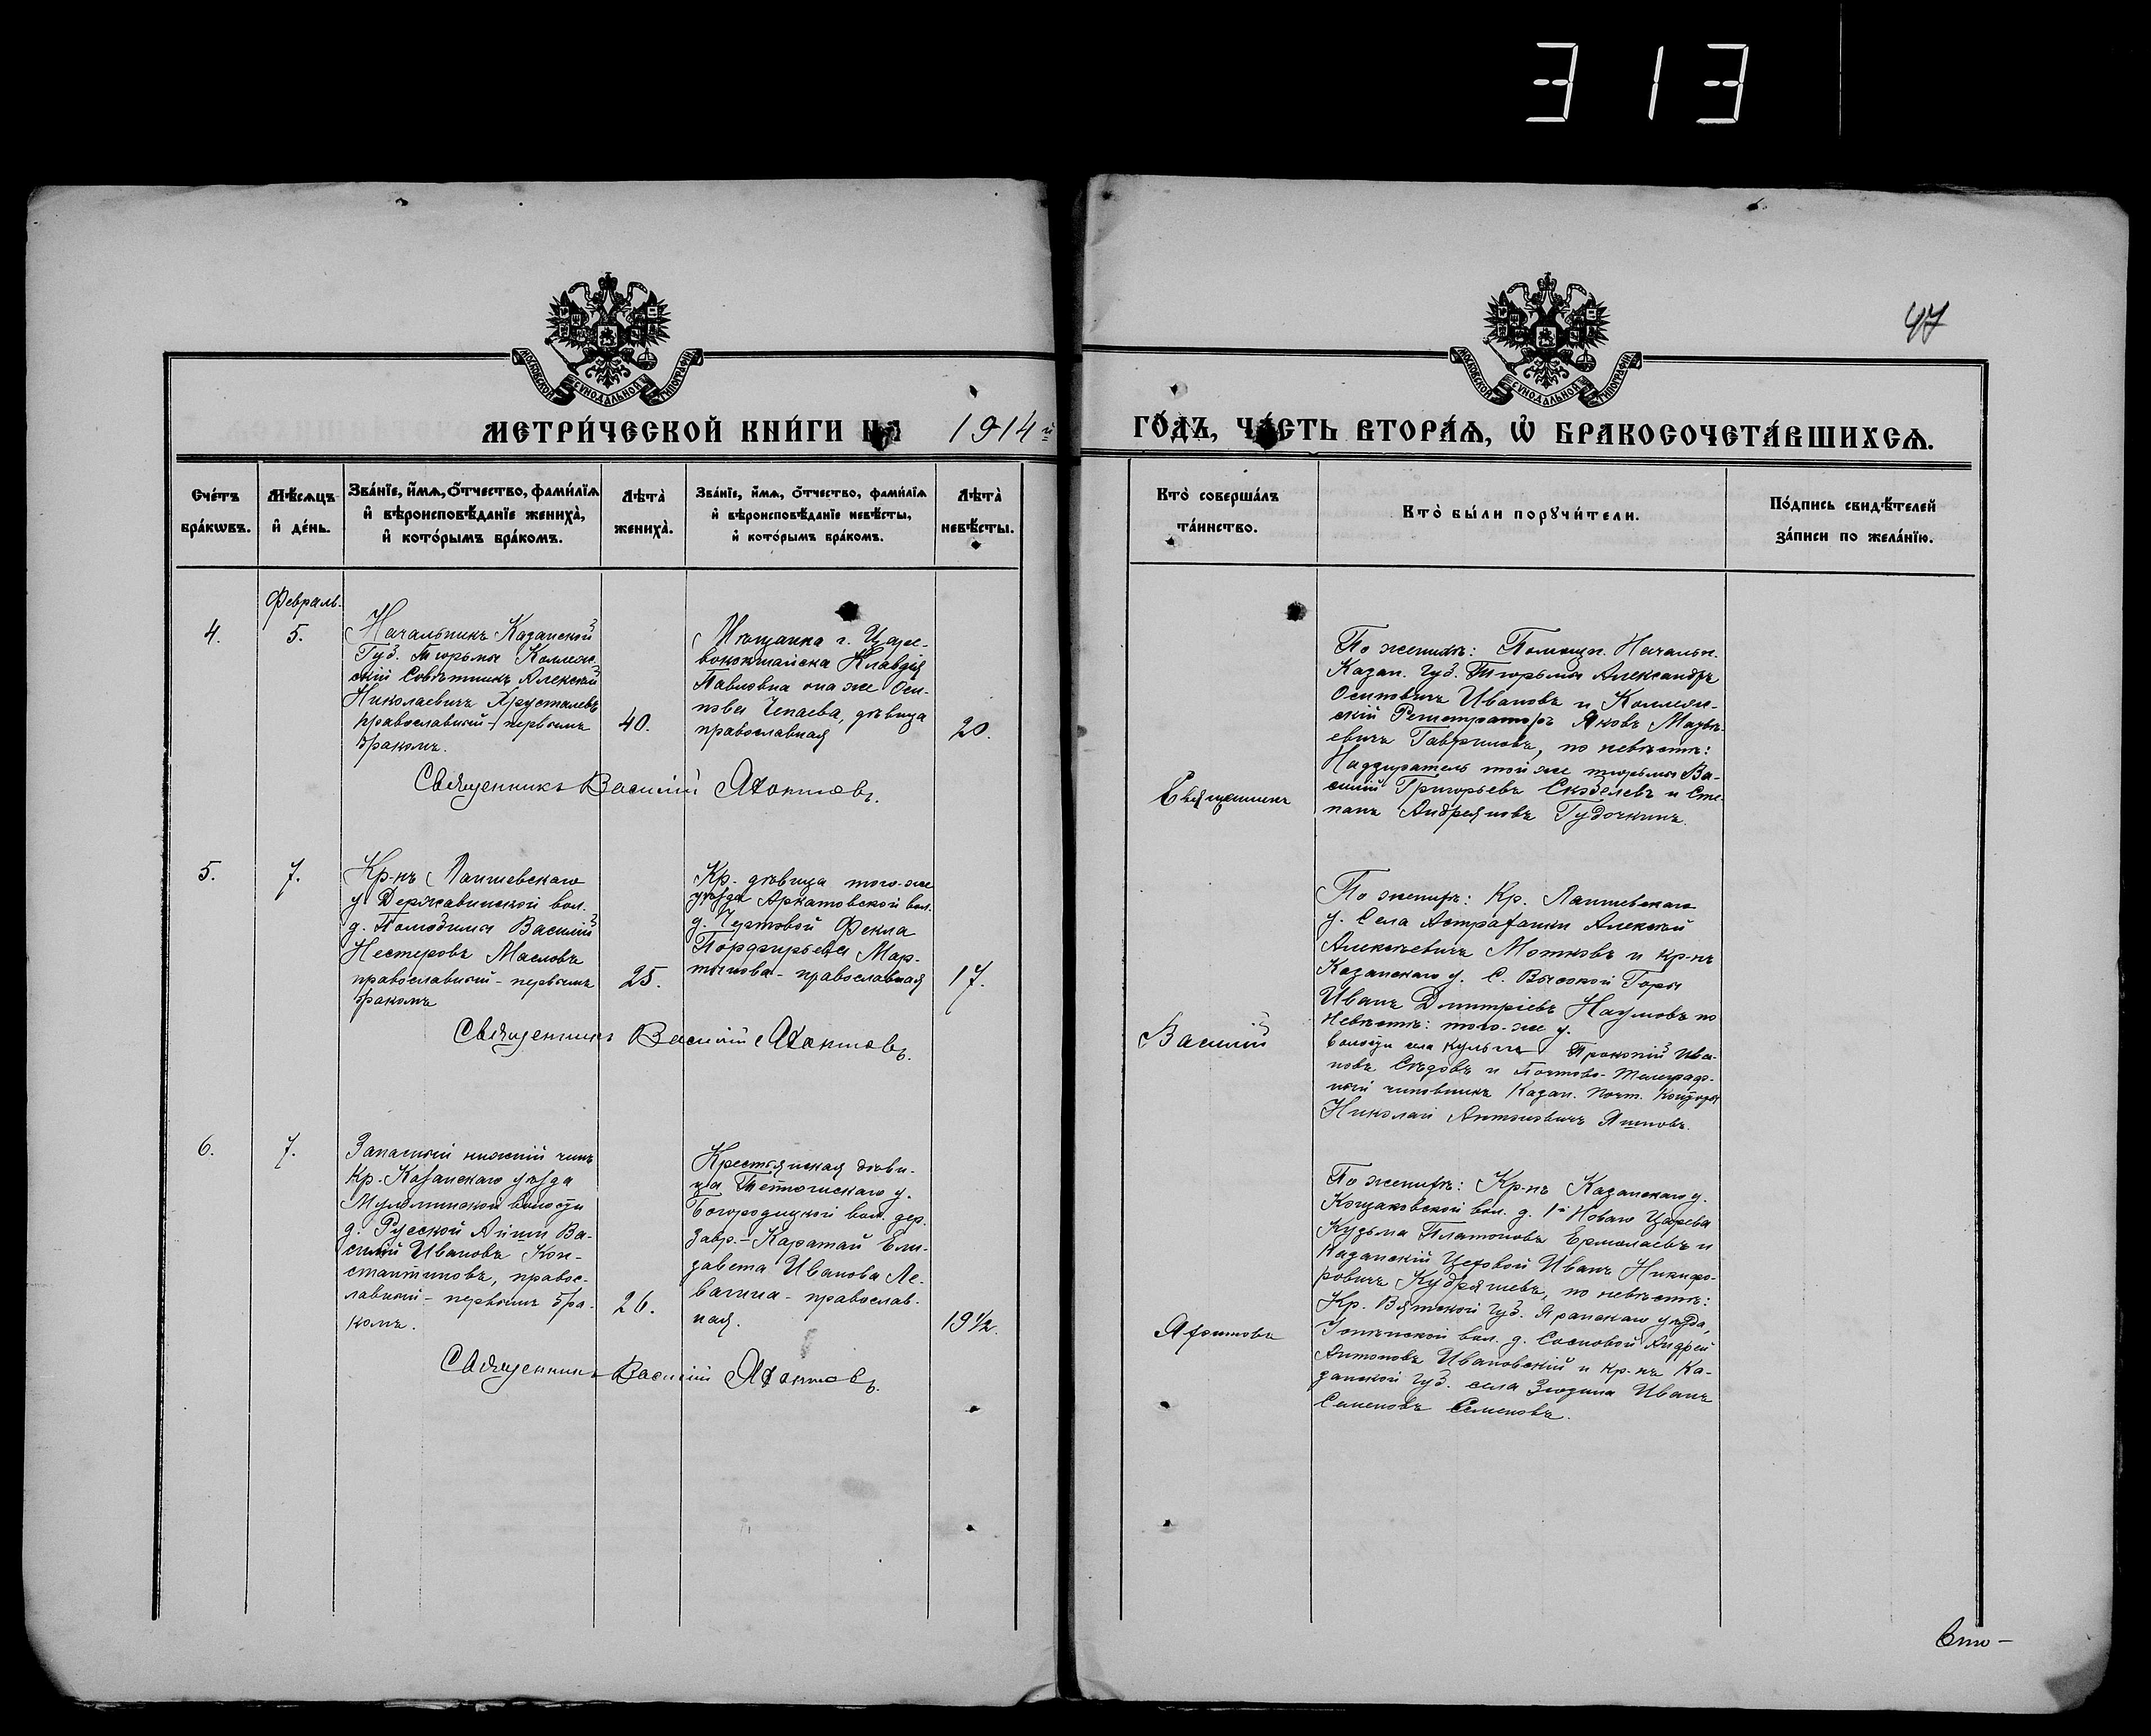 313
47
МОСКОВСКОЙ СѴНОДАЛЬНОЙ ТИПОГРАФІИ
МОСКОВСКОЙ СѴНОДАЛЬНОЙ ТИПОГРАФІИ
МЕТРИ́ЧЕСКОЙ КНИ́ГИ НА 1914й ГО́ДЪ, ЧА́СТЬ ВТОРА́Ѧ, Ѡ҆ БРАКОСОЧЕТА́ВШИХСѦ.
Сче́тъ
бра́кѡвъ.
Мѣ́сѧцъ
и҆ де́нь.
Зва́нїе, и҆́мѧ, ѻ҆́тчество, фами́лїѧ
и҆ вѣроисповѣ́данїе жениха̀,
и҆ кото́рымъ бра́комъ.
Лѣта̀
жениха̀.
Зва́нїе, и҆́мѧ, ѻ҆́тчество, фами́лїѧ
и҆ вѣроисповѣ́данїе невѣ́сты,
и҆ кото́рымъ бра́комъ.
Лѣта̀
невѣ́сты.
Кто̀ соверша́лъ
та́инство.
Кто̀ бы́ли порꙋчи́тели.
По́дпись свидѣ́телей
за́писи по жела́нїю.
Февраль.
4.
5.
Начальникъ Казанской
Губ. тюрьмы Коллеж-
скій Совѣтникъ Алексѣй
Николаевичъ Хрусталевъ
православный - первымъ
бракомъ.
40.
Мѣщанка г. Царе-
вококшайска Клавдія
Павловна она же Оси-
пова Чепаева, дѣвица
православная
20.
Священникъ Василій Яхонтовъ.
Священникъ
По женихѣ: Помощн. Начальн.
Казан. губ. Тюрьмы Александръ
Осиповичъ Ивановъ и Коллеж-
скій Регистраторъ Яковъ Матвѣ-
евичъ Гавриловъ, по невѣстѣ:
Надзиратель той же тюрьмы Ва-
силій Григорьевъ Скобелевъ и Сте-
панъ Андреяновъ Гудочкинъ.
5.
7.
Кр-нъ Лаишевскаго
у Державинской вол.
д. Василій
Нестеровъ Масловъ
православный - первымъ
бракомъ
25.
Кр. дѣвица того-же
уѣзда Аркатовской вол.
д. Фекла
Порфирьева Мар-
тынова - православная
17.
Священникъ Василій Яхонтовъ.
Василій
По женихѣ: Кр. Лаишевскаго
у. Села Астраханки Алексѣй
Алексѣевичъ Мотковъ и кр-нъ
Казанскаго у. С. Высокой Горы
Иванъ Дмитріевъ Наумовъ по
Невѣстѣ: того-же у.
волости села Прокопій Ива-
новъ Сѣдовъ и Почтово-Телеграф-
ный чиновникъ Казан. почт. конторы
Николай Антоновичъ
6.
7.
Запасный нижній чинъ
Кр. Казанскаго уѣзда
Мульминской волости
д. Русской Айши Ва-
силій Ивановъ Кон-
стантиновъ, правос-
лавный - первымъ бра-
комъ.
26.
Крестьянская дѣви-
ца Тетюшскаго у.
Богородицкой вол. дер.
Каратай Ели-
завета Ивановна Ле-
вагина - православ-
ная.
19½.
Священникъ Василій Яхонтовъ.
Яхонтовъ
По женихѣ: Кр-нъ Казанскаго у.
Кощаковской вол. д. 1й Новаго Царева
Кузьма Платоновъ Ермолаевъ и
Казанскій Цеховой Иванъ Никифо-
ровичъ Кудряшевъ, по невѣстѣ:
Кр. Вятской губ. Яранскаго уѣзда,
вол. д. Сосновой Андрей
Антоновъ Ивановскій и кр-нъ Ка-
занской губ. села Зюзина Иванъ
Семеновъ Семеновъ.